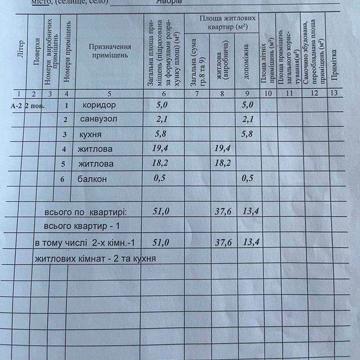 місто, (селище, село)
Площа житлових
квартир (м²)
Літер
Поверхи
Номери виробничих
приміщень
Номери приміщень
Призначення
приміщень
Загальна площа при-
міщень (підрахована
за формулами розра-
хунку площ) (м²)
Загальна (сума
гр.8 та 9)
житлова
(виробнича)
допоміжна
Площа літніх
приміщень (м²)
Площа приміщень
загального корис-
тування(м²)
Самочинно збудована,
переобладнана площа
приміщень (м²)
Примітка
1 2 3 4 5 6 7 8 9 10 11 12 13
А-2 2 пов. 1 коридор 5,0 5,0
2 санвузол 2,1 2,1
3 кухня 5,8 5,8
4 житлова 19,4 19,4
5 житлова 18,2 18,2
6 балкон 0,5 0,5
всього по квартирі: 51,0 37,6 13,4
всього квартир - 1
в тому числі 2-х кімн.-1 51,0 37,6 13,4
житлових кімнат - 2 та кухня